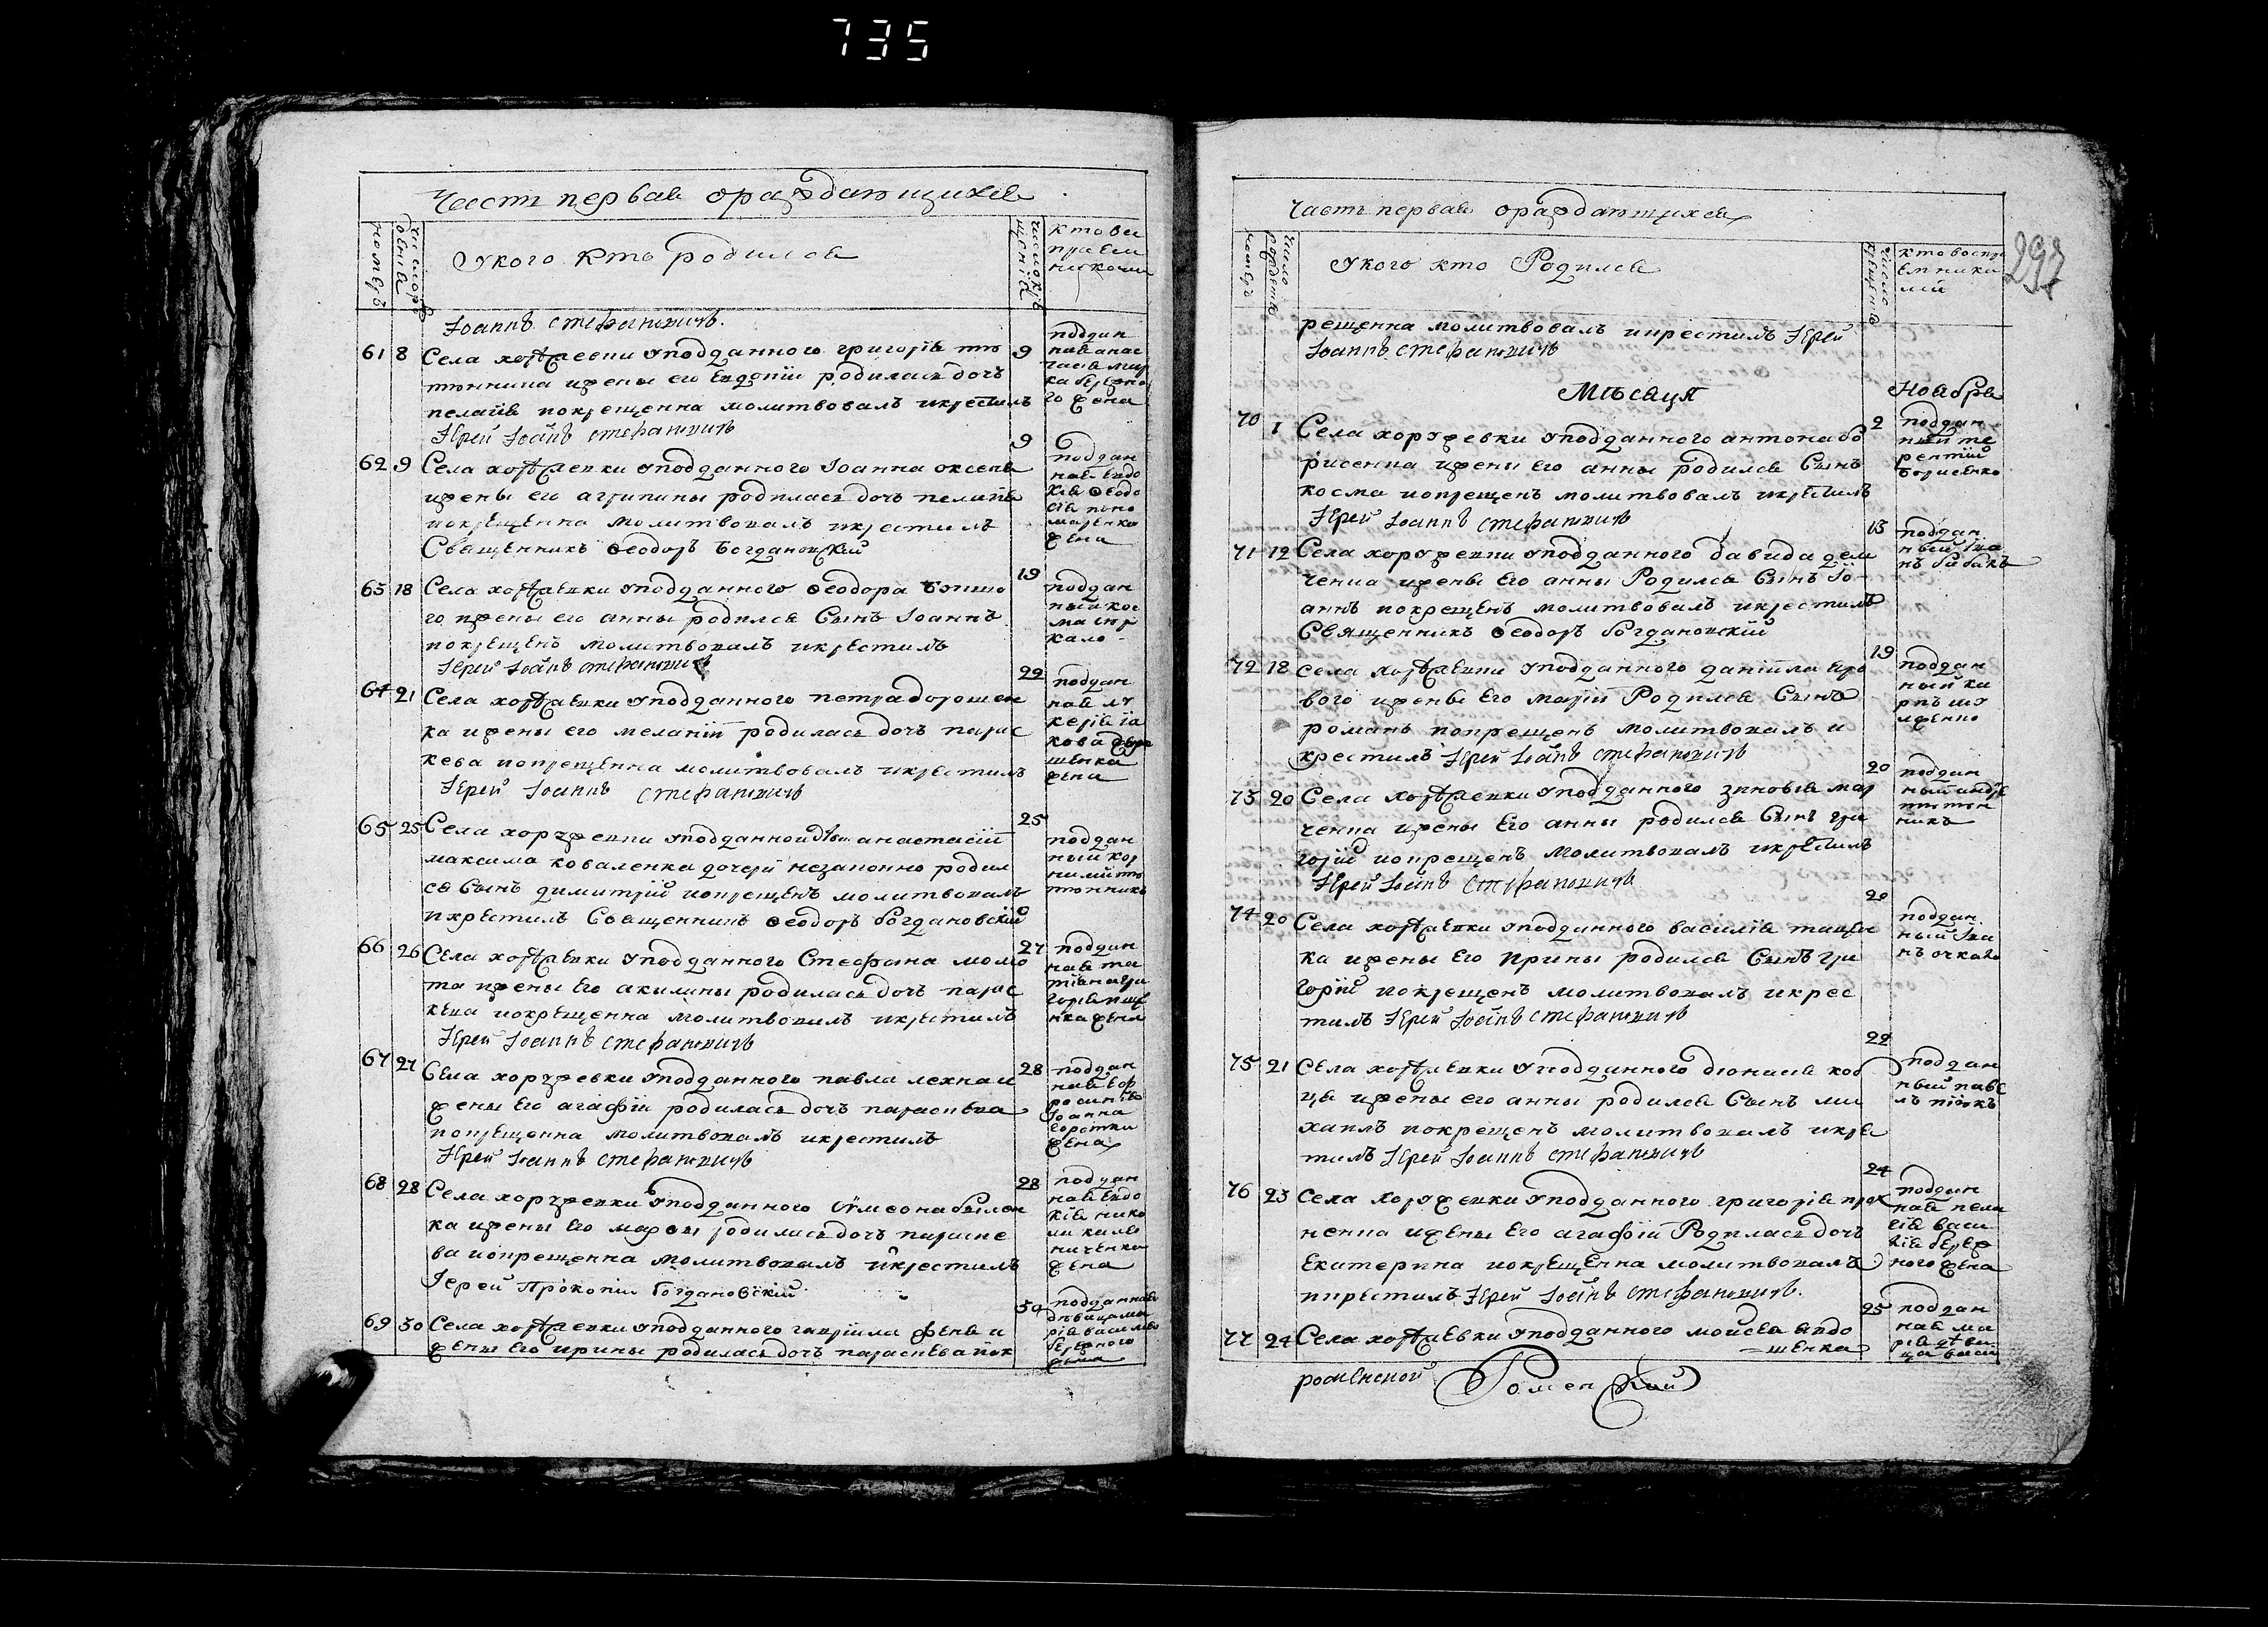 735
Часть первая ораждающихся
номеръ
число рожденія
Укого кто родился
число крещенія
кто воспріемникоми
Іоаннъ стефановичъ.
61 8 Села хоружевки уподданного григорія тю 9
тюнника ижены его евдокіи родилась дочь
пелагія иокрещенна молитвовалъ икрестилъ
Іерей Іоаннъ стефановичъ
поддан
ная анас
тасія мар
ка бережно
го жена
62 9 Села хоружевки уподданного Іоанна 9
ижены его агрипины родилась дочь пелагія
иокрещенна молитвовалъ икрестилъ
Священникъ Ѳеодоръ Богдановскій
поддан
ная евдо
кія Ѳеодо
сія поно
маренка
жена
63 18 Села хоружевки уподданного Ѳеодора 19
го ижены его анны родился Сынъ Іоаннъ
иокрещенъ молитвовалъ икрестилъ
Іерей Іоаннъ стефановичъ
поддан
ный кос
ма
кало
64 21 Села хоружевки уподданного петра дорошен 22
ка ижены его меланіи родилась дочь парас
кева иокрещенна молитвовалъ икрестилъ
Іерей Іоаннъ стефановичъ
поддан
ная лу
керія іа
кова
шенка
жена
65 25 Села хоружевки уподданной анастасіи 25
максима коваленка дочери незаконно родил
ся Сынъ димитрій иокрещенъ молитвовалъ
икрестилъ Священникъ Ѳеодоръ Богдановскій
поддан
ный кор
нилій тю
тюнникъ
66 26 Села хоружевки уподданного Стефана момо 27
та ижены его акилины родилась дочь парас
кева иокрещенна молитвовалъ икрестилъ
Іерей Іоаннъ стефановичъ
поддан
ная та
тіяна гри
горія
нка жена
67 27 Села хоружевки уподданного павла лехна и 28
жены его агафіи родилась дочь параскева
иокрещенна молитвовалъ икрестилъ
Іерей Іоаннъ стефановичъ
поддан
ная еф
росинія
Іоанна
коротки
жена
68 28 Села хоружевки уподданного Сѵмеона билен 28
ка ижены его марѳы родилась дочь параске
ва иокрещенна молитвовалъ икрестилъ
Іерей Прокопій Богдановскій
поддан
ная евдо
кія нико
лая каль
ниченка
жена
69 30 Села хоружевки уподданного гавріила феня и 30
жены его ирины родилась дочь параскева иок
подданная
дѣвица ма
рія василія
бережного
дочь
297
Часть первая ораждающихся
номеръ
число рожденія
Укого кто Родился
число крещенія
кто воспріемниками
рещенна молитвовалъ икрестилъ Іерей
Іоаннъ стефановичъ
Мѣсяца Ноября
70 1 Села хоружевки уподданного антона бо 2
рисенка ижены его анны родился Сынъ
косма иокрещенъ молитвовалъ икрестилъ
Іерей Іоаннъ стефановичъ
поддан
ный те
рентій
борисенко
71 12 Села хоружевки уподданного давида дем 13
ченка ижены Его анны Родился Сынъ Іо
аннъ иокрещенъ молитвовалъ икрестилъ
Священникъ Ѳеодоръ Богдановскій
поддан
ный Іва
нъ бабакъ
72 18 села хоружевки уподданного даніила яро 19
вого ижены Его маріи Родился Сынъ
романъ иокрещенъ молитвовалъ и
крестилъ Іерей Іоаннъ стефановичъ
поддан
ный ка
рпъ шу
менко
73 20 Села хоружевки уподданного зиновія мар 20
ченка ижены Его анны родился Сынъ гри
горій иокрещенъ молитвовалъ икрестилъ
Іерей Іоаннъ стефановичъ
поддан
ный андре
тютюн
никъ
74 20 Села хоружевки уподданного василія тищен 20
ка ижены Его Ирины родился Сынъ гри
горій иокрещенъ молитвовалъ икрес
тилъ Іерей Іоаннъ стефановичъ
поддан
ный Іва
нъ очкало
75 21 Села хоружевки уподданного діонисія коб 22
ця ижены его анны родился Сынъ ми
хаилъ иокрещенъ молитвовалъ икрес
тилъ Іерей Іоаннъ стефановичъ
поддан
ный паве
лъ
76 23 Села хоружевки уподданного григорія прок 24
ненка ижены Его агафіи Родилась дочь
Екатерина иокрещенна молитвовалъ
икрестилъ Іерей Іоаннъ стефановичъ.
поддан
ная пела
гія васи
лія береж
ного жена
77 24 Села хоружевки уподданного мойсея явдо 25
=шенка
поддан
ная ма
рія дѣви
ца васи
роменской Роменскій